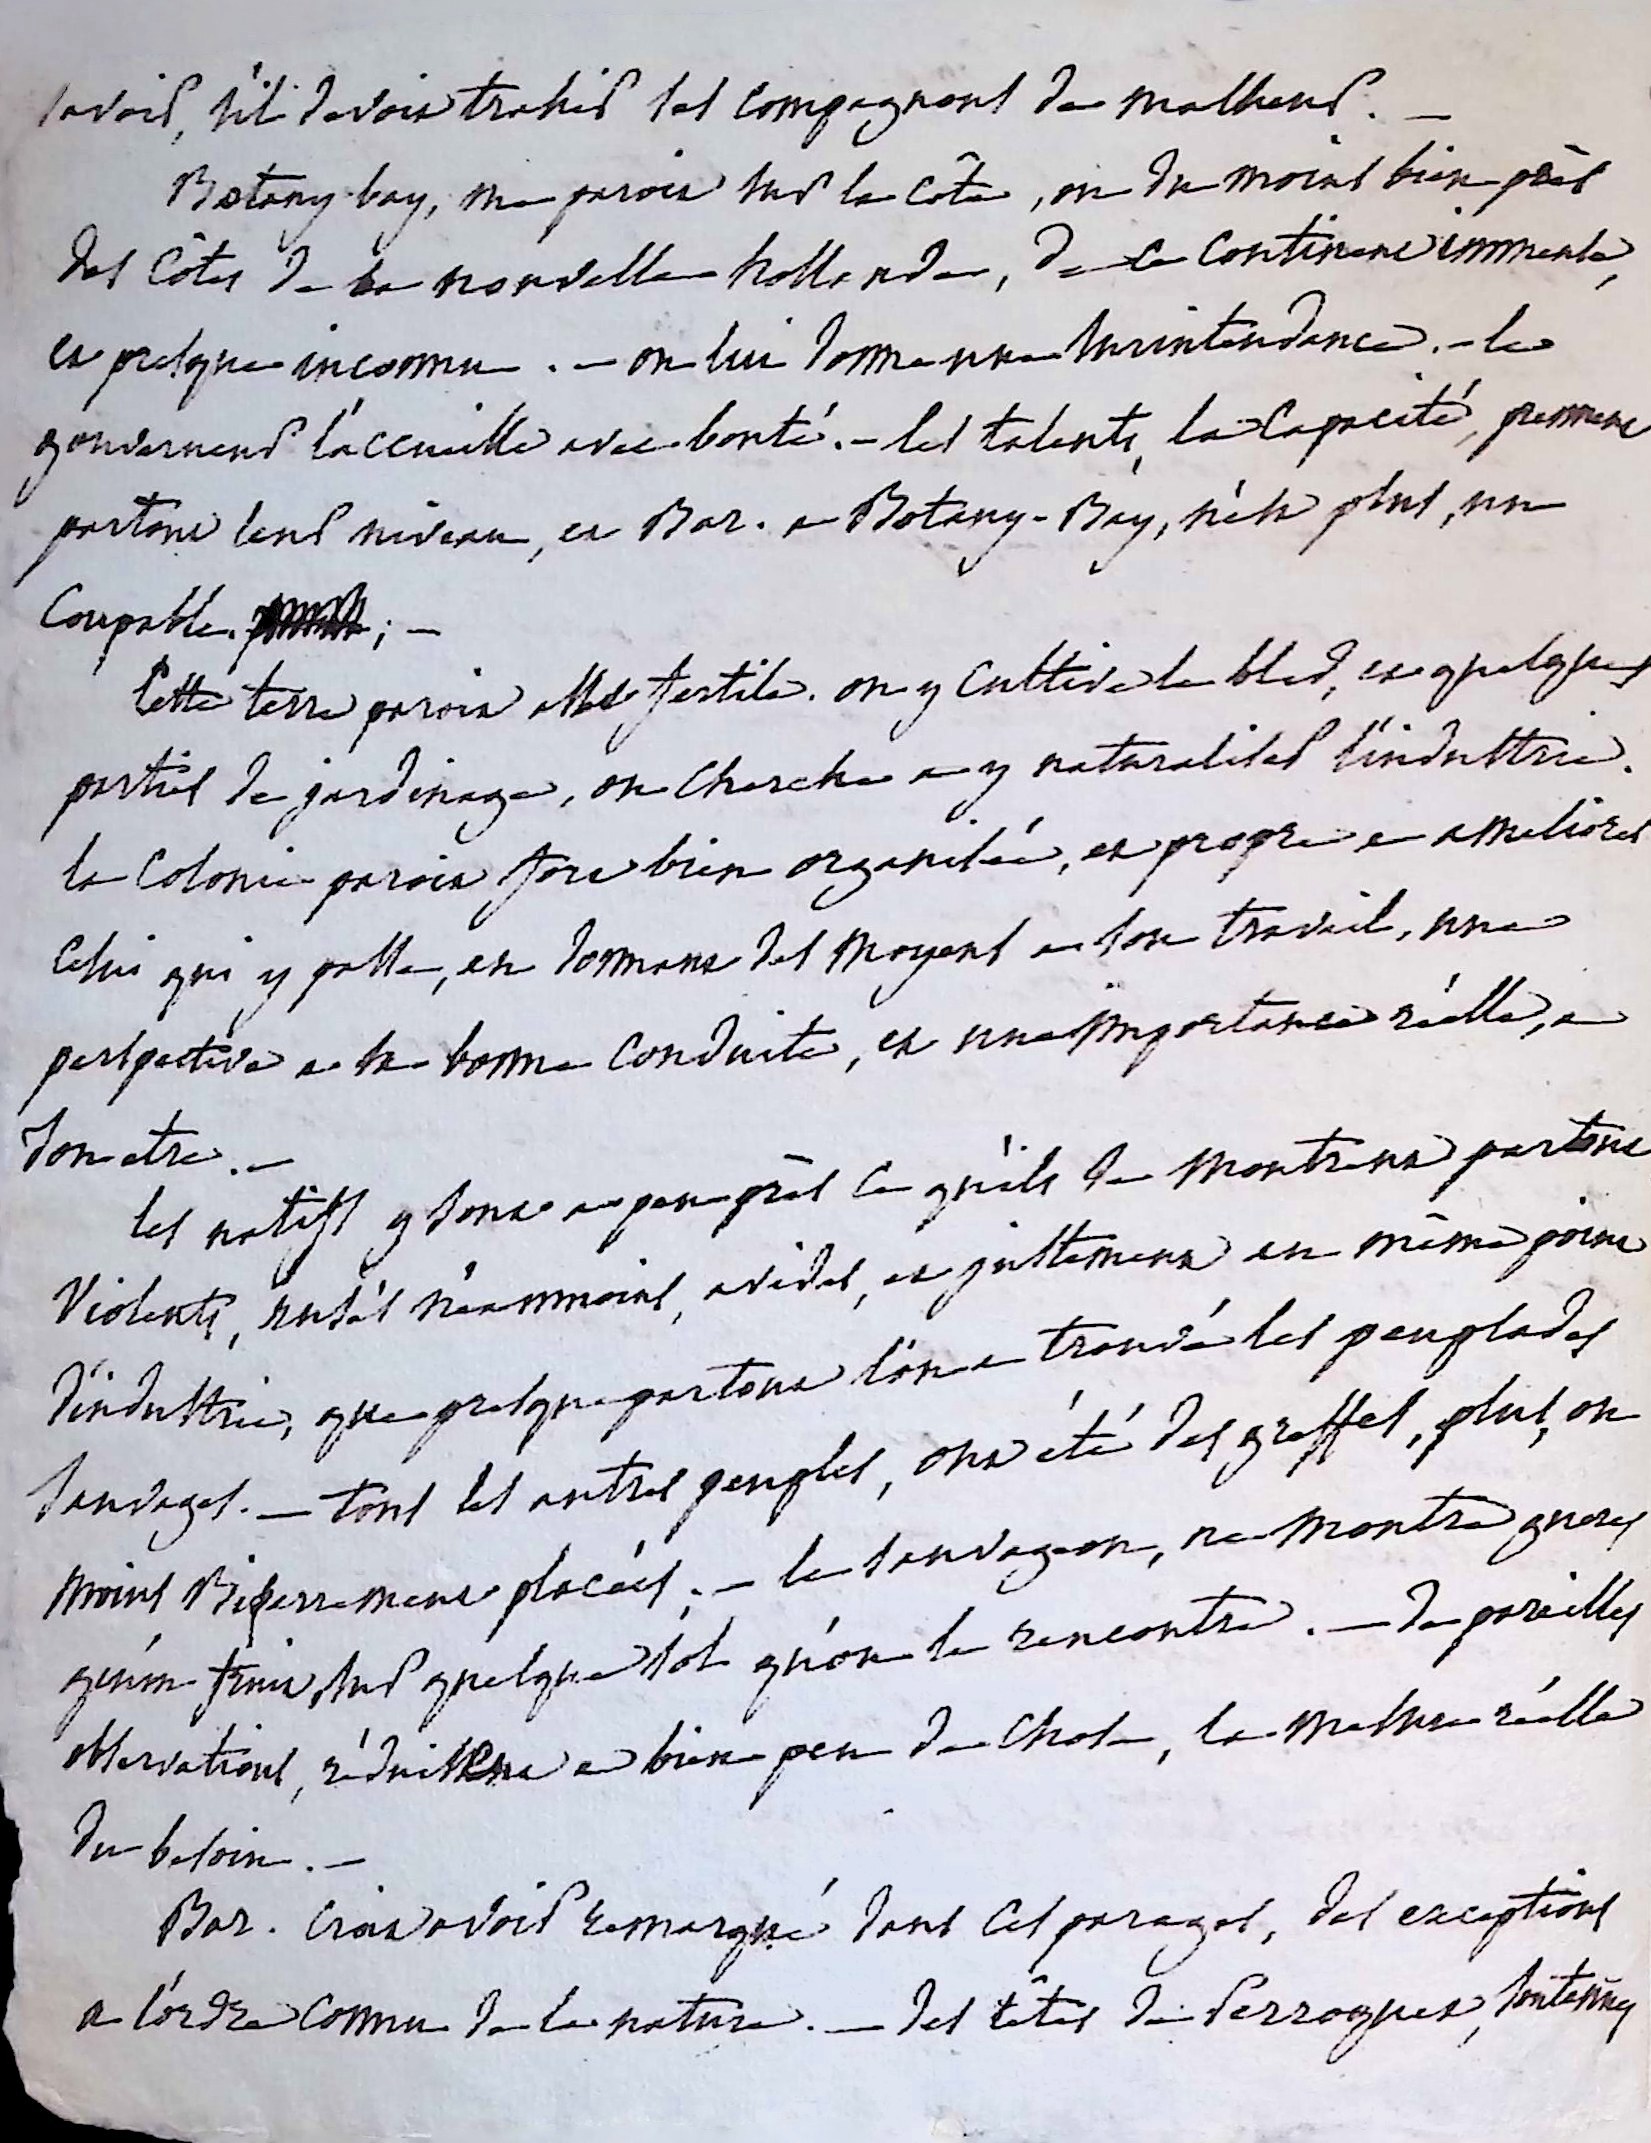 savoir, s'il devoit trahir ses compagnons de malheur. —
Botany-bay, me paroit sur la côte, ou du moins bien près
des côtes de la nouvelle hollande, de ce continent immense,
et presque inconnu. — on lui donne une surintendance. — le
gouverneur l'accueille avec bonté. — les talents, la capacité, prennent
partout leur niveau, et Bar. a Botany-Bay, n'est plus, un
Coupable. ; —
Cette terre paroit assés fertile. on y cultive le bled, et quelques
parties de jardinage, on cherche a y naturaliser l'industrie.
la Colonie paroit fort bien organisée, et propre a ameliorer
celui qui y passe, en donnant des moyens a son travail, une
perspective a sa bonne conduite, et une importance réelle, a
son etre. —
les natifs y sont a peu près ce qu'ils se montrent partout
Violents, rusés néanmoins, avides, et justement au même point
d'industrie, que presque partout l'on a trouvé les peuplades
sauvages. — tous les autres peuples, ont été des greffes, plus, ou
moins Bizerrement placées. — le sauvageon, ne montre gueres
qu'un fruit, sur quelque sol qu'on le rencontre. — de pareilles
observations, réduisent a bien peu de chose, la mesure réelle
du besoin. —
Bar. croit avoir remarqué dans ces parages, des exceptions
a l'ordre connu de la nature. — des têtes de Perroquet, soutenues